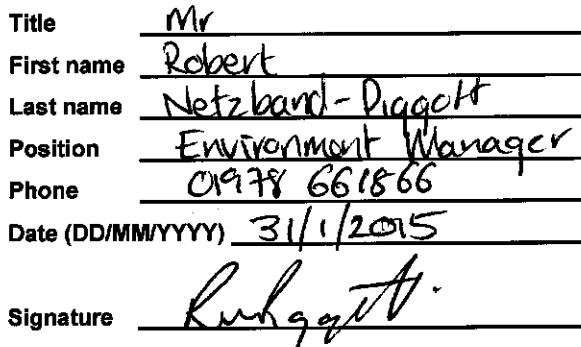 Title Mr
First name Robert
Last name Netzband-Piggott
Position Environment Manager
Phone 01978 661866
Date (DD/MM/YYYY) 31/1/2015
Signature